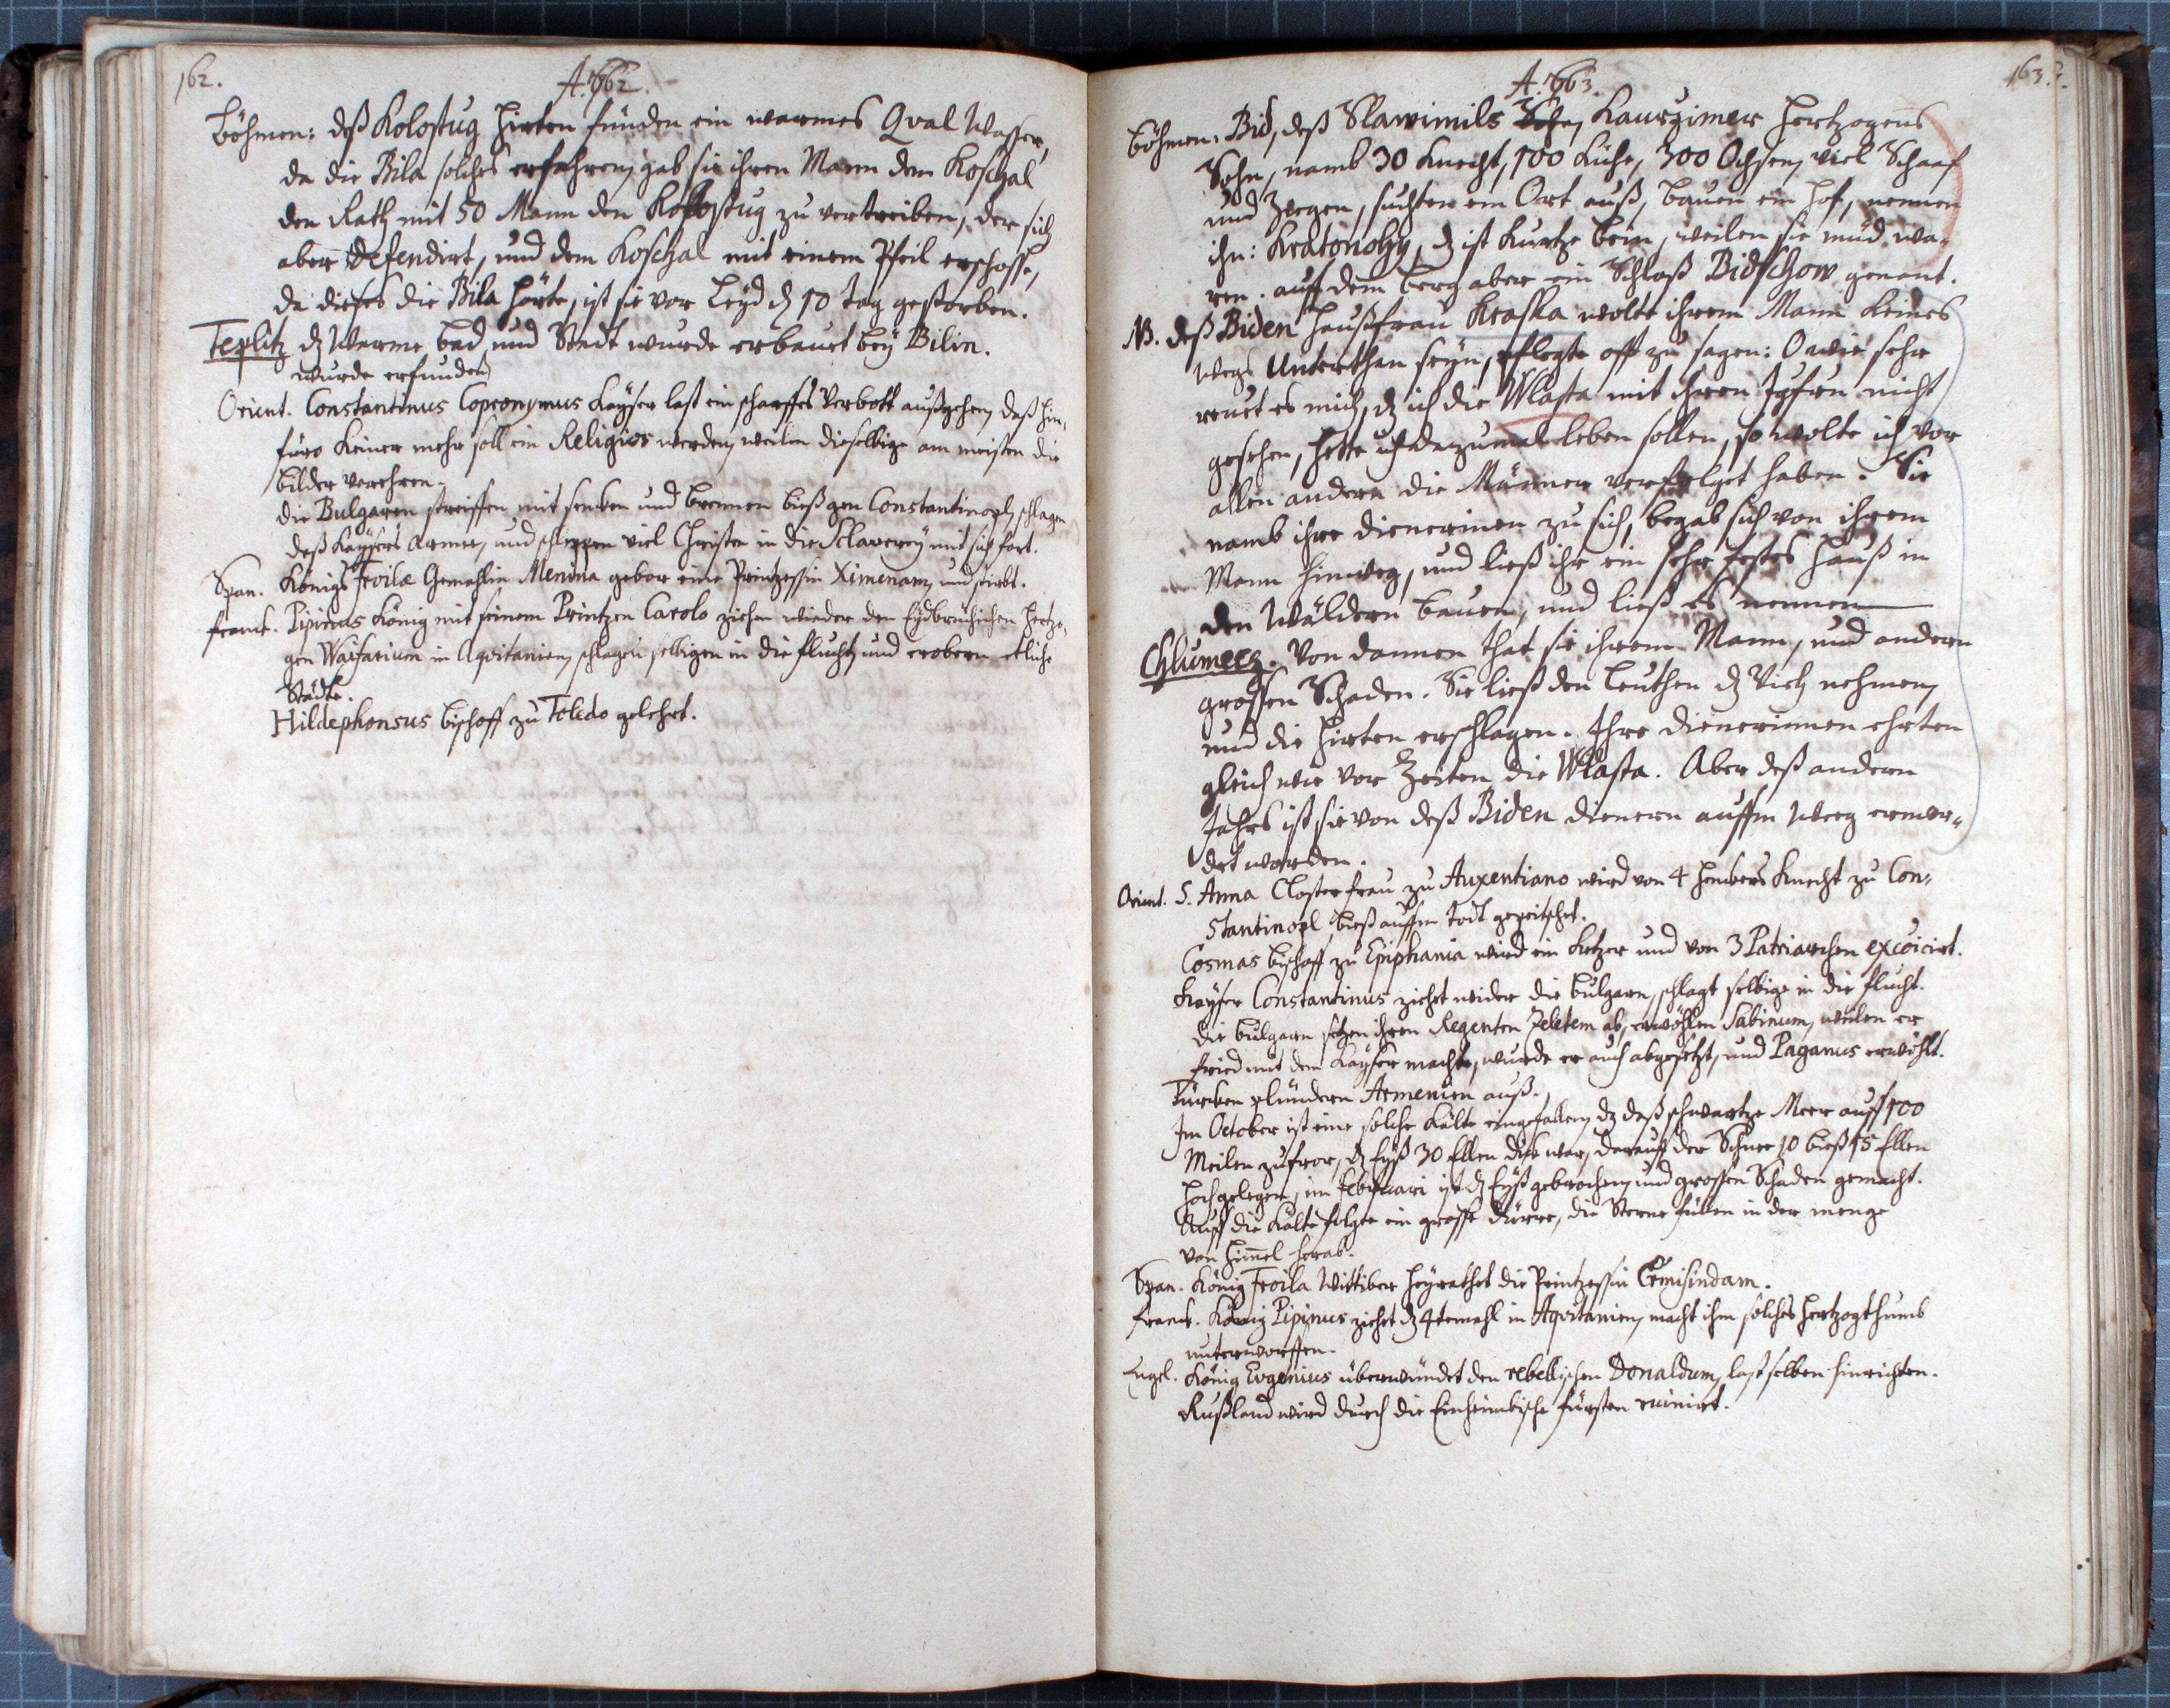 162.
A. 762.
Böhmen: deß Kolostug Hirten funden ein warmes Qval Wasser,
da die Bila solches erfahren, gab sie ihren Mann dem Koschal
den Rath mit 50 Mann den Kolostug zu vertreiben, der sich
aber defendirt, und dem Koschal mit einem Pfeil erschosse,
da dieses die Bila hörte, ist sie vor Leyd dz 10 tag gestorben.
Teplitz dz Warme bad und Stadt wurde erbauet bey Bilin.
wurde erfunden
Orient. Constantinus Copronymus Kayser last ein scharffes Verbott außgehen, daß hin,
füro keiner mehr soll ein Religios werden, weilen dieselbige am meisten die
bilder verehren.
die Bulgaren streiffen mit sencken und brennen bieß gen Constantinopl, schlagen
deß Kaysers Armee, und schleppen viel Christen in die Sclaverey mit sich fort.
Span. Königs Froilæ Gemahlin Menina gebar eine Printzessin Ximenam, und stirbt.
franck. Pipinus König mit seinem Printzen Carolo ziehen wieder den Eydbrüchichen Hertzo,
gen Waifarium in Aqvitanien, schlagen selbigen in die flucht, und erobern etliche
Städte.
Hildephonsus bischoff zu Toledo gelehrt.
163.
A. 763.
Böhmen. Bid, deß Slawimils Kaurzimer Hertzogens
Sohn, namb 30 Knecht, 100 Kühe, 300 Ochsen, viel Schaaf
und Ziegen, suchten ein Ort auß, bauen ein Hof, nennen
ihn: Kratonohy, dz ist Kurtze bein, weilen sie müd wa,
ren. auf dem berg aber ein Schloß Bidschow genent.
NB. deß Biden Haußfrau Kraska wolte ihrem Mann keines
wegs Unterthan seyn, pflegte offt zu sagen: O wie sehr
reuet es mich, dz ich die Wlasta mit ihren Jgfrn nicht
gesehen, hette ich dazumal leben sollen, so wolte ich vor
allen andern die Männer verfolget haben. Sie
namb ihre dienerinen zu sich, begab sich von ihrem
Mann hinweg, und ließ ihr ein sehr festes Hauß in
den Wäldern bauen, und ließ es nennen
Chlumecz. Von dannen that sie ihrem Mann, und andern
grossen Schaden. Sie ließ den Leuthen dz Vieh nehmen,
und die Hirten erschlagen. Ihre dienerinnen ehrten
gleich wie vor Zeiten die Wlasta. Aber deß andern
Jahrs ist sie von deß Biden dienern auffm Weeg ermor,
det worden.
Orient. S. Anna Closterfrau zu Auxentiano wird von 4 Henckers Knecht zu Con,
stantinopl bieß auffm todt gepeitschet.
Cosmas bischoff zu Epiphania wird ein Ketzer und von 3 Patriarchen excoicirt.
Kayser Constantinus ziehet wider die bulgarn, schlagt selbige in die flucht.
die bulgarn setzen ihren Regenten Zeletem ab, erwöhlen Sabinum, weilen er
fried mit dem Kayser machte, wurde er auch abgesetzt, und Paganus erwöhlt.
Türcken plündern Armenien auß.
Im October ist eine solche Kälte eingefallen, dz deß schwartze Meer auff 100
Meilen zufror, dz Eyß 30 Ellen dick war, darauff der Schnee 10 bieß 15 Ellen
hoch gelegen, im Februari ist dz Eyß gebrochen, und grossen Schaden gemacht.
Auff die Kälte folgte ein grosse dürre, die Sterne fielen in der menge
von Himmel herab.
Span. König Froila Wittiber heyrathet die Printzessin Ermisindam.
franck. König Pipinus ziehet dz 4temahl in Aqvitanien, macht ihm solches Hertzogthumb
unterworffen.
Engel. König Eugenius überwündet den rebellischen Donaldum, last selben hinrichten.
Rußland wird durch die Einheimbische fürsten ruinirt.